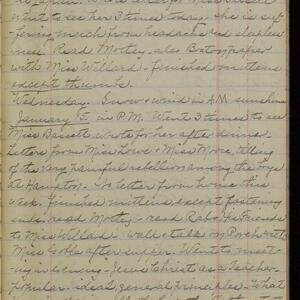 went to see her 3 times today. She is suf-
fering much from headache and sleepless
ness. Read Motley - also Boston paper
with Miss Willard - finished mittens
except thumbs.
Wednesday. Snow & wind in A.M. sunshine
January 5. in P.M. Went 3 times to see
Miss Bassett wrote for her after dinner.
Letters from Miss Lowe & Miss Moore, telling
of the very painful rebellion among the boys
at Hampton. No letter from home this
week. Finished mittens except fastening
ends. read Motley - read Rab & His Friends
to Miss Willard. Walk & talk on Porch with
Miss after supper. Went to meet-
ing in evening - Jesus Christ as a Teacher.
Popular - ideas, general principles - That